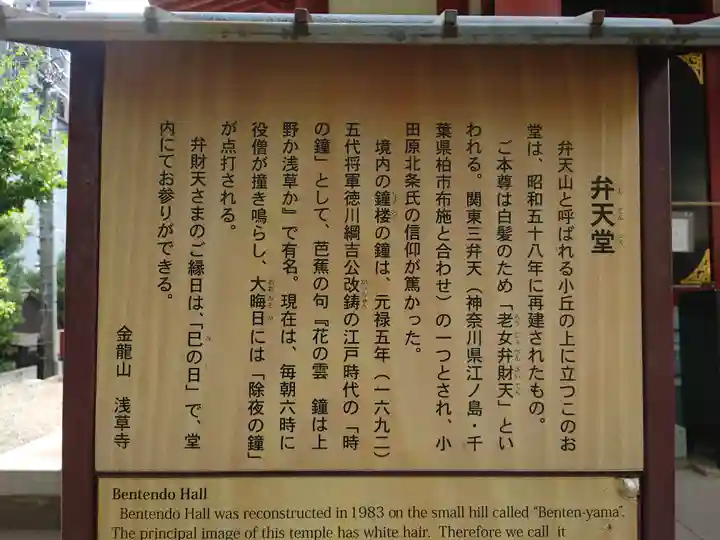 弁天堂
弁天山と呼ばれる小丘の上に立つこのお
堂は、昭和五十八年に再建されたもの。
ご本尊は白髪のため「老女弁財天」とい
われる。関東三弁天（神奈川県江ノ島・千
葉県柏市布施と合わせ）の一つとされ、小
田原北条氏の信仰が篤かった。
境内の鐘楼の鐘は、元禄五年（一六九二）
五代将軍徳川綱吉公改鋳の江戸時代の「時
の鐘」として、芭蕉の句『花の雲　鐘は上
野か浅草か』で有名。現在は、毎朝六時に
役僧が撞き鳴らし、大晦日には「除夜の鐘」
が点打される。
弁財天さまのご縁日は、「巳の日」で、堂
内にてお参りができる。
金龍山　浅草寺
Bentendo Hall
Bentendo Hall was reconstructed in 1983 on the small hill called “Benten-yama”.
The principal image of this temple has white hair. Therefore we call it